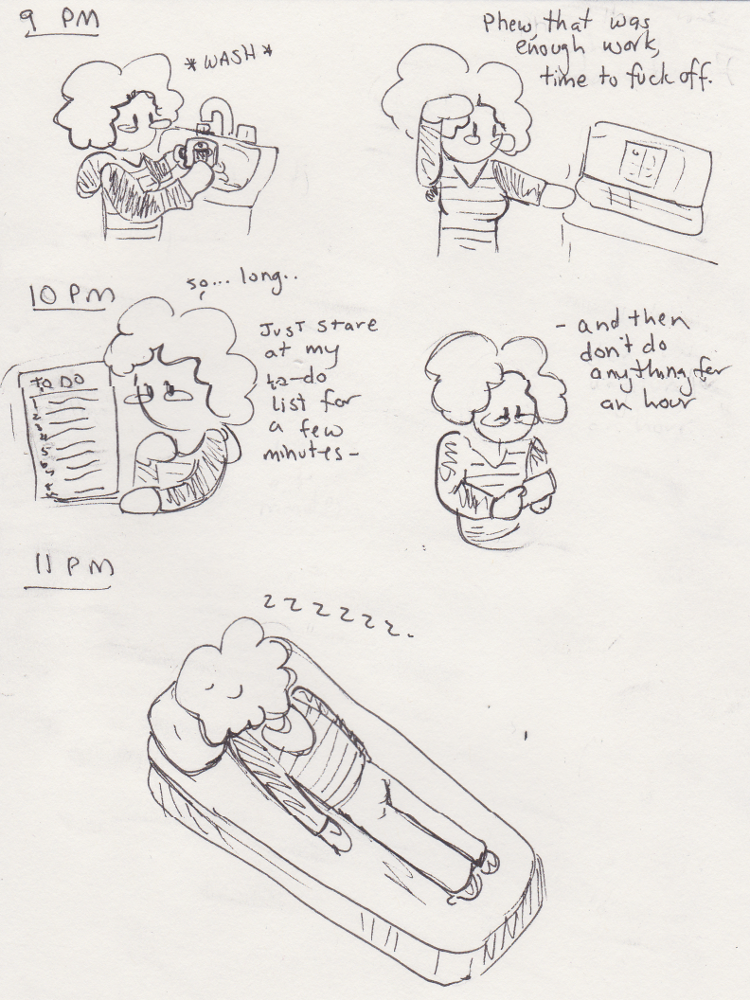 9 PM
*WASH*
Phew, that was
enough work,
time to fuck off.
10 PM
so... long..
TO DO
1
2
3
4
5
6
7
8
Just stare
at my
to-do
list for
a few
minutes-
- and then
don't do
anything for
an hour
11 PM
z z z z z z.